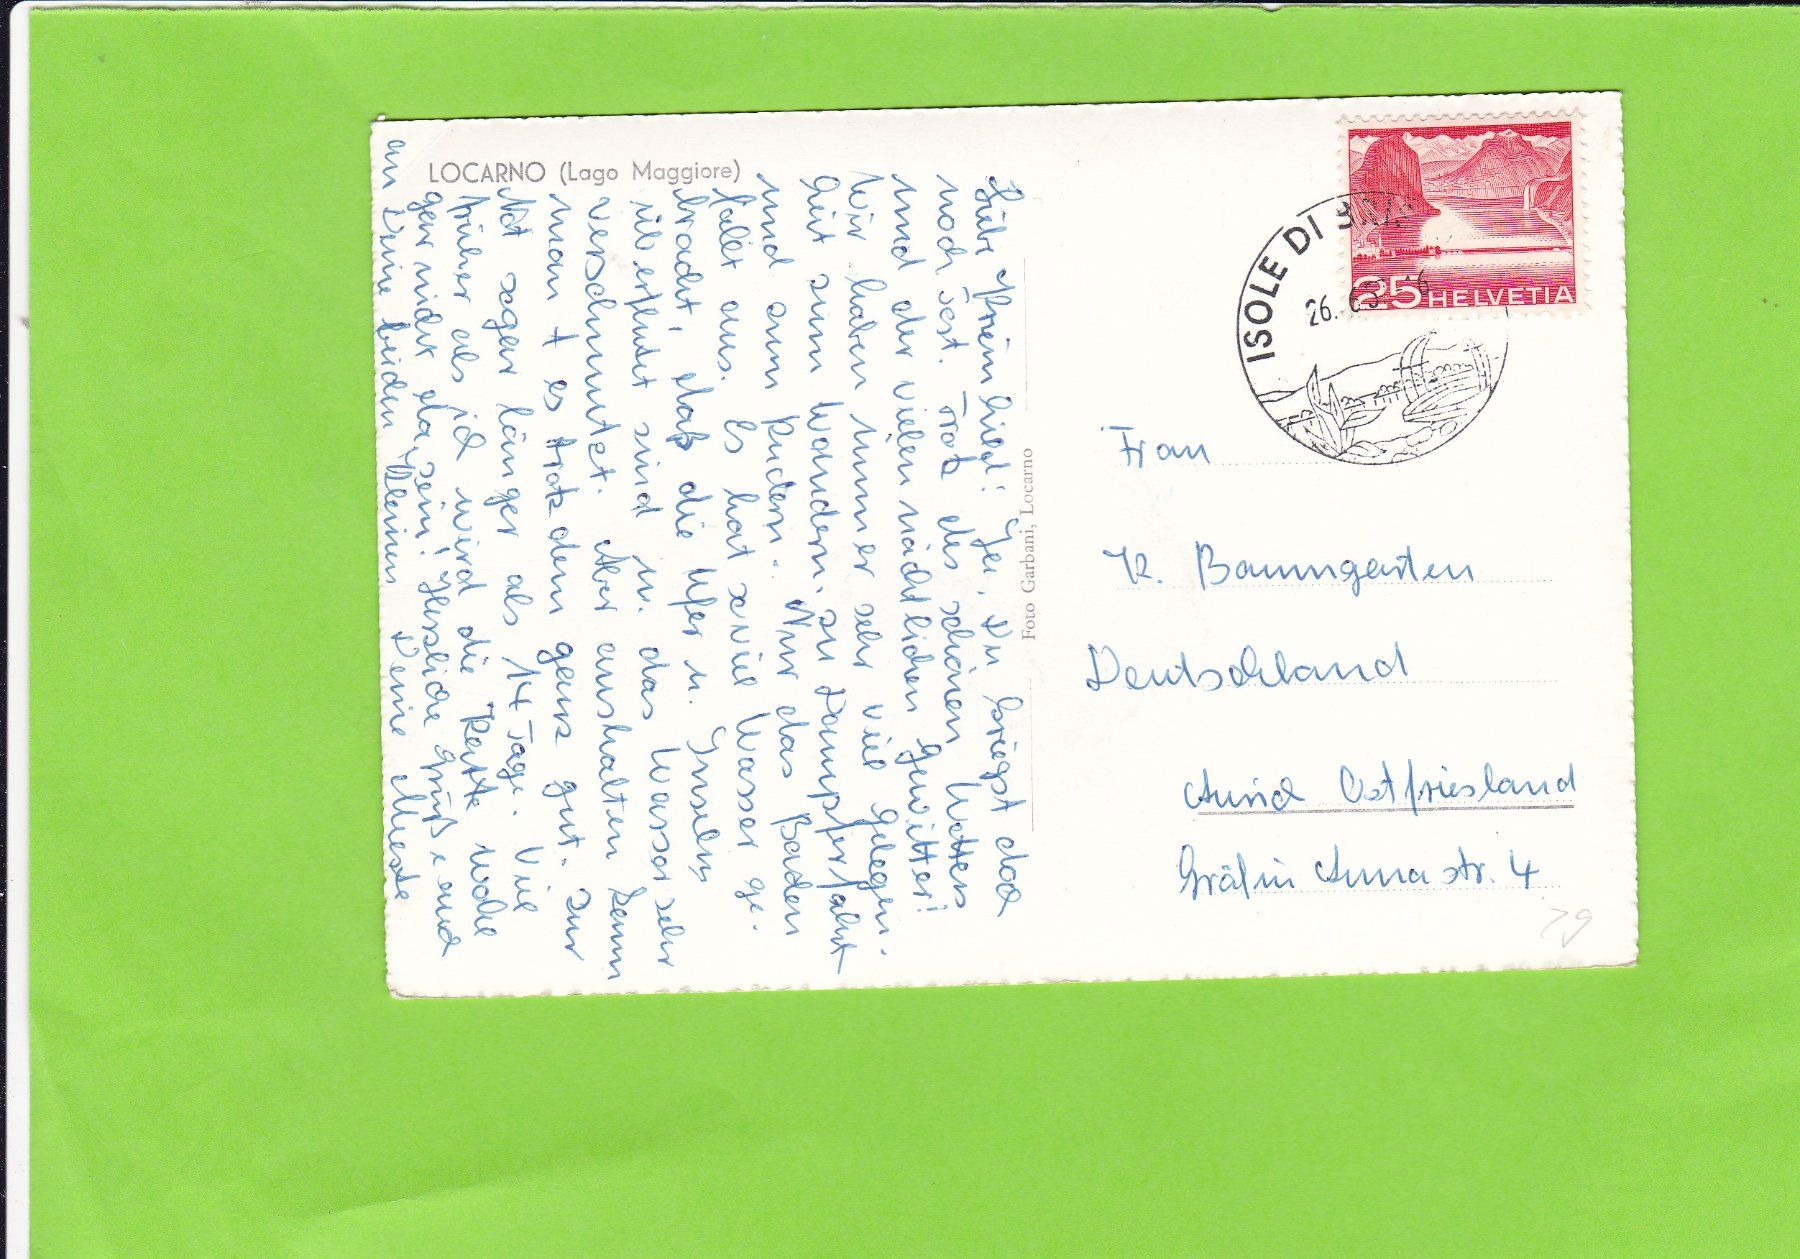 LOCARNO (Lago Maggiore)
Foto Garbani, Locarno
Liebe Kriemhild! Ja, Du kriegst doch
noch Post. Trotz des schönen Wetters
und der vielen nächtlichen Gewitter!
Wir haben immer sehr viel Gelegen-
heit zum Wandern, zu Dampferfahrt
und zum Rudern. Nur das Baden
fällt aus. Es hat soviel Wasser ge-
bracht, daß die Ufer u. Inseln
überflutet sind u. das Wasser sehr
verschmutzt. Aber aushalten kann
man es trotzdem ganz gut. Zur
Not sogar länger als 14 Tage. Viel
früher als ich wird die Karte wohl
gar nicht da sein! Herzliche Grüße und
an Deine beiden Kleinen Deine
HELVETIA
25
ISOLE DI
26.
Frau
K. Baumgarten
Deutschland
Aurich Ostfriesland
Gräfin Anna str. 4